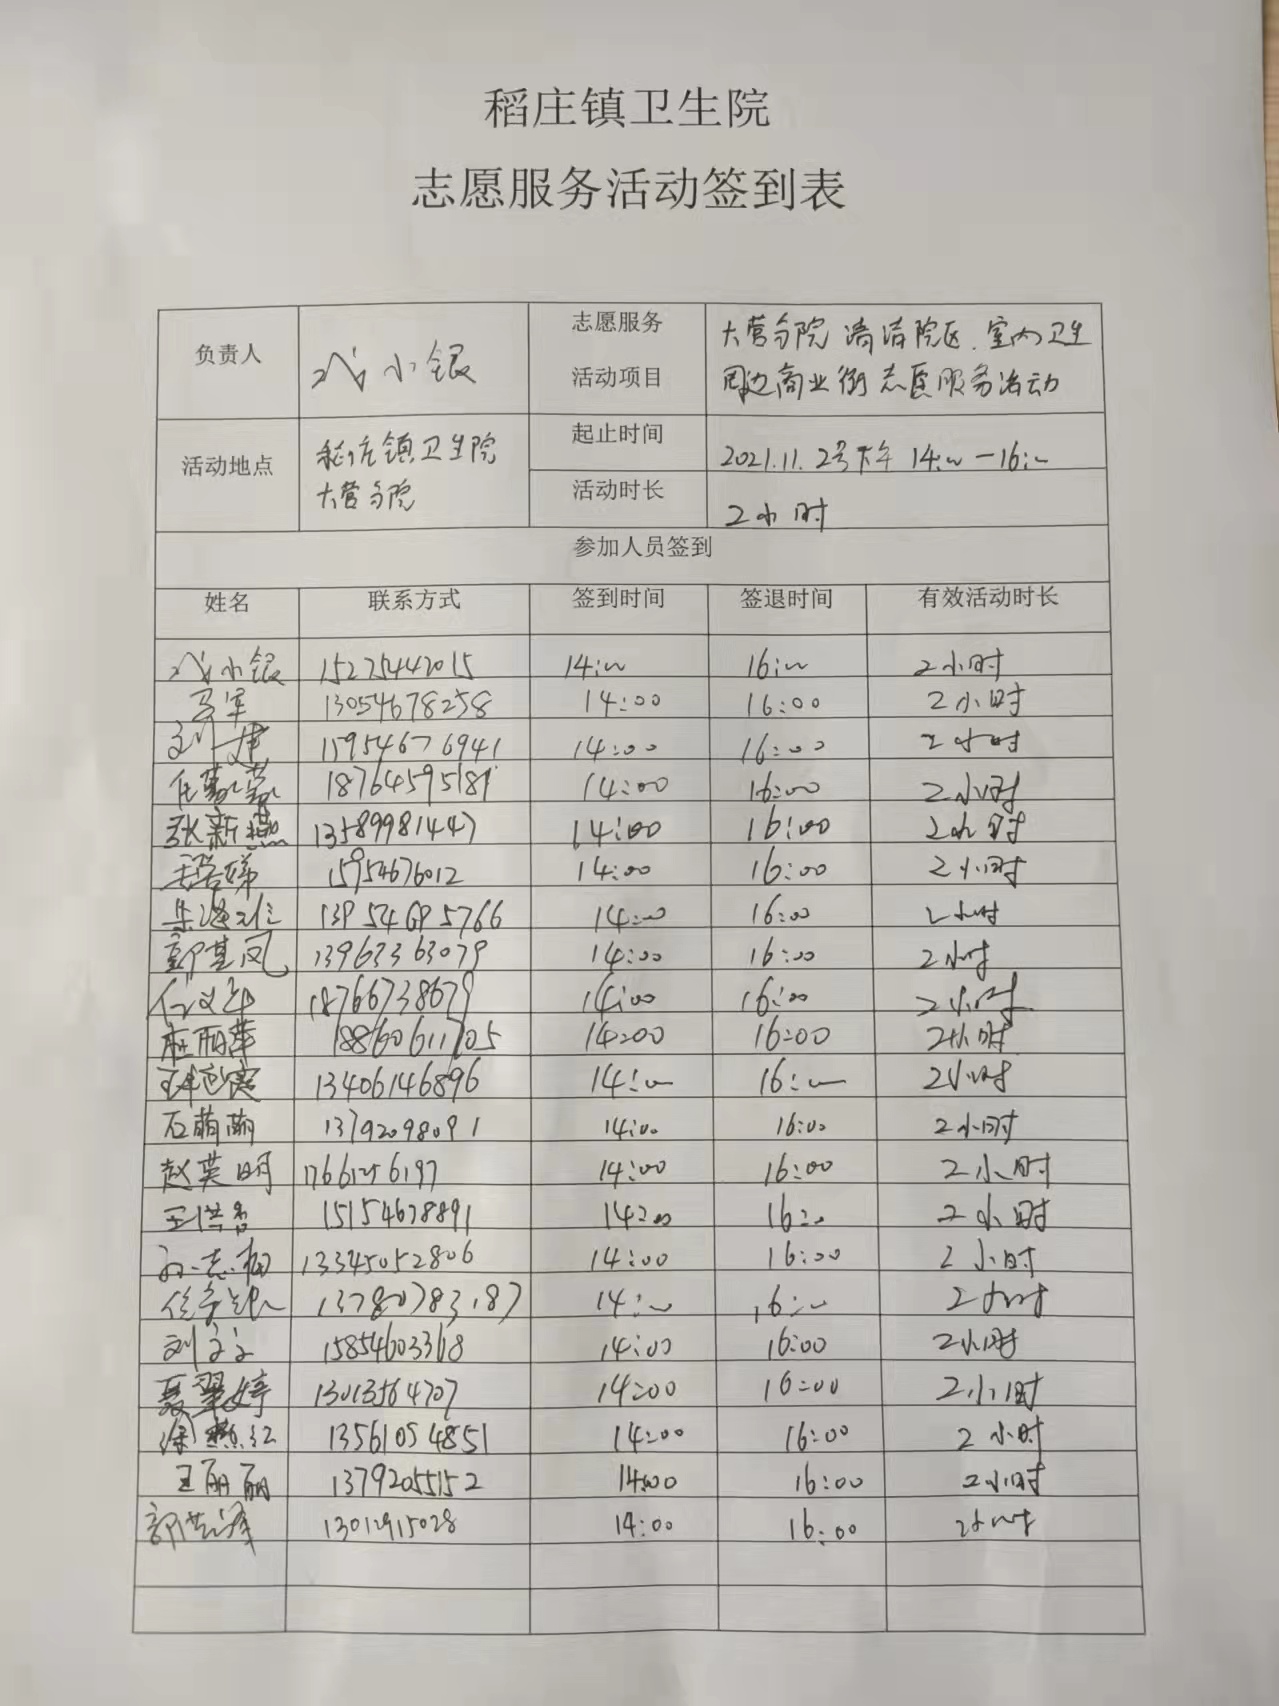 稻庄镇卫生院
志愿服务活动签到表
负责人 小银 志愿服务活动项目 大营分院清洁院区.室内卫生
周边商业街志愿服务活动
活动地点 稻庄镇卫生院
大营分院
起止时间 2021.11.2号下午 14:00—16:00
活动时长 2小时
参加人员签到
姓名 联系方式 签到时间 签退时间 有效活动时长
小银 15275442015 14:00 16:00 2小时
马军 13054678258 14:00 16:00 2小时
刘建 15954676941 14:00 16:00 2小时
任蒙蒙 18764595181 14:00 16:00 2小时
张新燕 13589981447 14:00 16:00 2小时
15954676012 14:00 16:00 2小时
14:00 16:00 2小时
郭其凤 13963363079 14:00 16:00 2小时
18766738679 14:00 16:00 2小时
杜丽萍 18860611705 14:00 16:00 2小时
13406146896 14:00 16:00 2小时
石萌萌 13792098091 14:00 16:00 2小时
赵英明 14:00 16:00 2小时
15154678891 14:00 16:00 2小时
孙志梅 13345052806 14:00 16:00 2小时
13780783187 14:00 16:00 2小时
刘文文 15854603368 14:00 16:00 2小时
聂翠婷 13013564707 14:00 16:00 2小时
徐燕红 13561054851 14:00 16:00 2小时
王丽丽 13792055152 14:00 16:00 2小时
13012915028 14:00 16:00 2小时